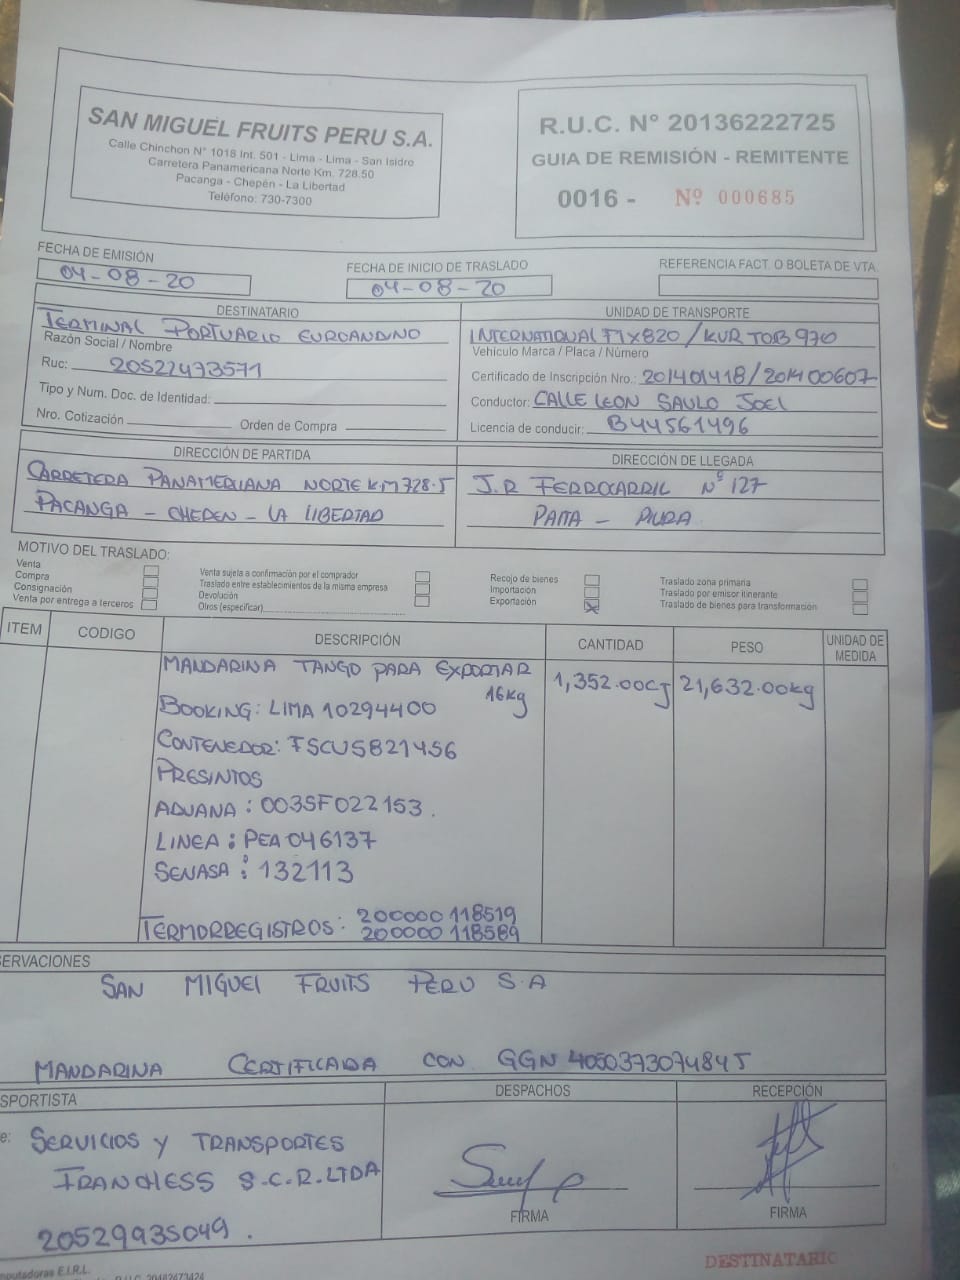 SAN MIGUEL FRUITS PERU S.A.
Calle Chinchon N° 1018 Int. 501 - Lima - Lima - San Isidro
Carretera Panamericana Norte Km. 728.50
Pacanga - Chepén - La Libertad
Teléfono: 730-7300
R.U.C. N° 20136222725
GUIA DE REMISIÓN - REMITENTE
0016 - Nº 000685
FECHA DE EMISIÓN
04-08-20
FECHA DE INICIO DE TRASLADO
04-08-20
REFERENCIA FACT. O BOLETA DE VTA.
DESTINATARIO
TERMINAL PORTUARIO EUROANDINO
Razón Social / Nombre
Ruc: 20522473571
Tipo y Num. Doc. de Identidad:
Nro. Cotización Orden de Compra
UNIDAD DE TRANSPORTE
INTERNATIONAL F1X820 / KUR TOB 970
Vehículo Marca / Placa / Número
Certificado de Inscripción Nro.: 201401418/201400607
Conductor: CALLE LEON SAULO JOEL
Licencia de conducir: B44561496
DIRECCIÓN DE PARTIDA
CARRETERA PANAMERICANA NORTE KM 728.5
PACANGA - CHEPEN - LA LIBERTAD
DIRECCIÓN DE LLEGADA
J.R FERROCARRIL N° 127
PAITA - PIURA
MOTIVO DEL TRASLADO:
Venta
Compra
Consignación
Venta por entrega a terceros
Venta sujeta a confirmación por el comprador
Traslado entre establecimientos de la misma empresa
Devolución
Otros (especificar)
Recojo de bienes
Importación
Exportación X
Traslado zona primaria
Traslado por emisor itinerante
Traslado de bienes para transformación
ITEM CODIGO DESCRIPCIÓN CANTIDAD PESO UNIDAD DE MEDIDA
MANDARINA TANGO PARA EXPORTAR 1,352.00CJ 21,632.00kg
16kg
BOOKING: LIMA 10294400
CONTENEDOR: FSCU5821456
PRESINTOS
ADUANA: 003SF022153.
LINEA: PEA 046137
SENASA: 132113
TERMORREGISTROS: 200000 118519
200000 118589
ERVACIONES
SAN MIGUEL FRUITS PERU S.A
MANDARINA CERTIFICADA CON GGN 4050373074845
SPORTISTA
e: SERVICIOS Y TRANSPORTES
FRANCHESS S.C.R.LTDA
20529935049.
DESPACHOS
FIRMA
RECEPCIÓN
FIRMA
mputadoras E.I.R.L.
R.U.C. 20482473424
DESTINATARIO